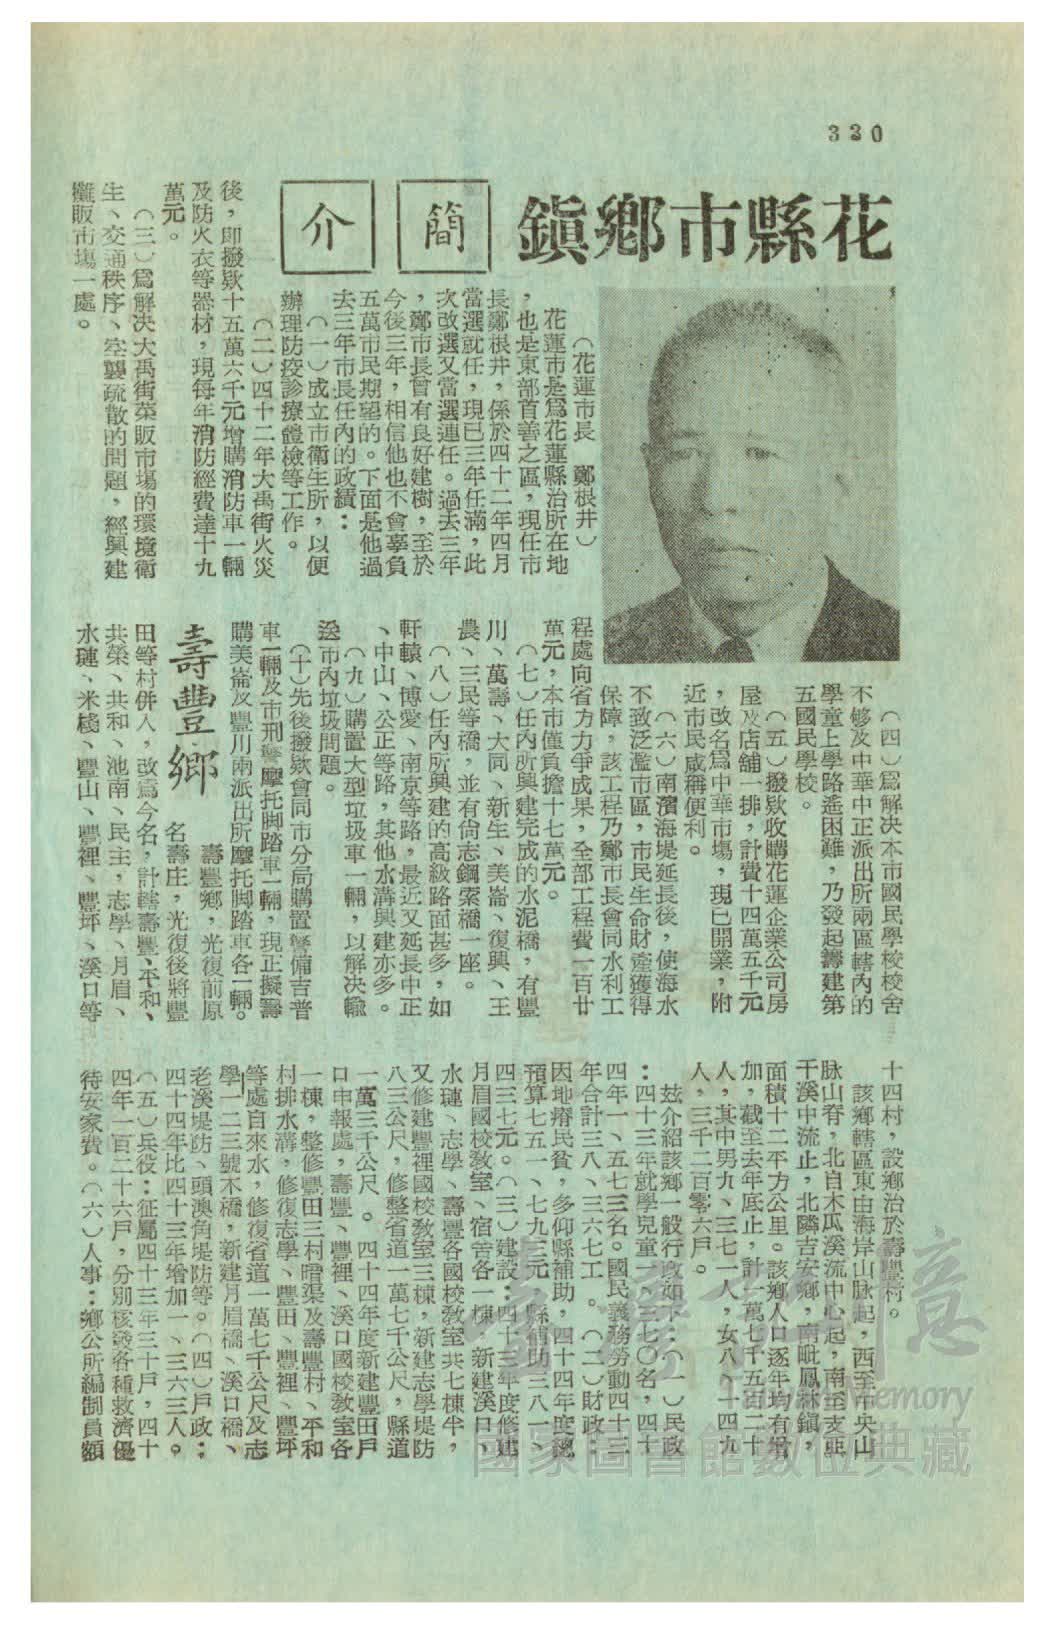 330
花縣市鄉鎮
簡介
（花蓮市長　鄭根井）
花蓮市是爲花蓮縣治所在地
，也是東部首善之區，現任市
長鄭根井，係於四十二年四月
當選就任，現已三年任滿，此
次改選又當選連任。過去三年
，鄭市長曾有良好建樹，至於
今後三年，相信他也不會辜負
五萬市民期望的。下面是他過
去三年市長任內的政績：
（一）成立市衛生所，以便
辦理防疫診療體檢等工作。
（二）四十二年大禹街火災
後，即撥欵十五萬六千元增購消防車一輛
及防火衣等器材，現每年消防經費達十九
萬元。
（三）爲解決大禹街菜販市場的環境衛
生、交通秩序、空襲疏散的問題，經興建
攤販市場一處。
（四）爲解決本市國民學校校舍
不够及中華中正派出所兩區轄內的
學童上學路遙困難，乃發起籌建第
五國民學校。
（五）撥欵收購花蓮企業公司房
屋及店舖一排，計費十四萬五千元
，改名爲中華市塲，現已開業，附
近市民咸稱便利。
（六）南濱海堤延長後，使海水
不致泛濫市區，市民生命財產獲得
保障，該工程乃鄭市長會同水利工
程處向省方力爭成果，全部工程費一百廿
萬元，本市僅負擔十七萬元。
（七）任內所興建完成的水泥橋，有豐
川、萬壽、大同、新生、美崙、復興、王
農、三民等橋，並有尙志鋼索橋一座。
（八）任內所興建的高級路面甚多，如
軒轅、博愛、南京等路，最近又延長中正
、中山、公正等路，其他水溝興建亦多。
（九）購置大型垃圾車一輛，以解決輸
送市內垃圾問題。
（十）先後撥欵會同市分局購置警備吉普
車一輛及市刑警摩托脚踏車一輛，現正擬籌
購美崙及豐川兩派出所摩托脚踏車各一輛。
壽豐鄉
壽豐鄉，光復前原
名壽庄，光復後將豐
田等村併入，改爲今名，計轄壽豐、平和、
共榮、共和、池南、民主，志學、月眉、
水璉、米棧、豐山、豐裡、豐坪、溪口等
十四村，設鄉治於壽豐村。
該鄉轄區東由海岸山脉起，西至中央山
脉山脊，北自木瓜溪流中心起，南至支亞
干溪中流止，北隣吉安鄉，南毗鳳林鎮，
面積十二平方公里。該鄉人口逐年均有增
加，截至去年底止，計一萬七千五百二十
人，其中男九、三七一人，女八、一四九
人，三千二百零六戶。
玆介紹該鄉一般行政如下：（一）民政
：四十三年就學兒童一、三七〇名，四十
四年一、五七三名。國民義務勞動四十三
年合計三八、三六七工。（二）財政：
因地瘠民貧，多仰縣補助，四十四年度總
預算七五一、七九三元，縣補助三八一、
四三七元。（三）建設：四十三年度修建
月眉國校教室、宿舍各一棟，新建溪口、
水璉、志學、壽豐各國校教室共七棟半，
又修建豐裡國校教室三棟，新建志學堤防
八三公尺，修整省道一萬七千公尺，縣道
一萬三千公尺。四十四年度新建豐田戶
口申報處，壽豐、豐裡、溪口國校教室各
一棟，整修豐田三村暗渠及壽豐村、平和
村排水溝，修復志學、豐田、豐裡、豐坪
等處自來水，修復省道一萬七千公尺及志
學一二三號木橋，新建月眉橋、溪口橋、
老溪堤防、頭澳角堤防等。（四）戶政：
四十四年比四十三年增加一、三六三人。
（五）兵役：征屬四十三年三十戶，四十
四年一百二十六戶，分別核發各種救濟優
待安家費。（六）人事：鄉公所編制員額
臺灣記憶
Taiwan Memory
國家圖書館數位典藏